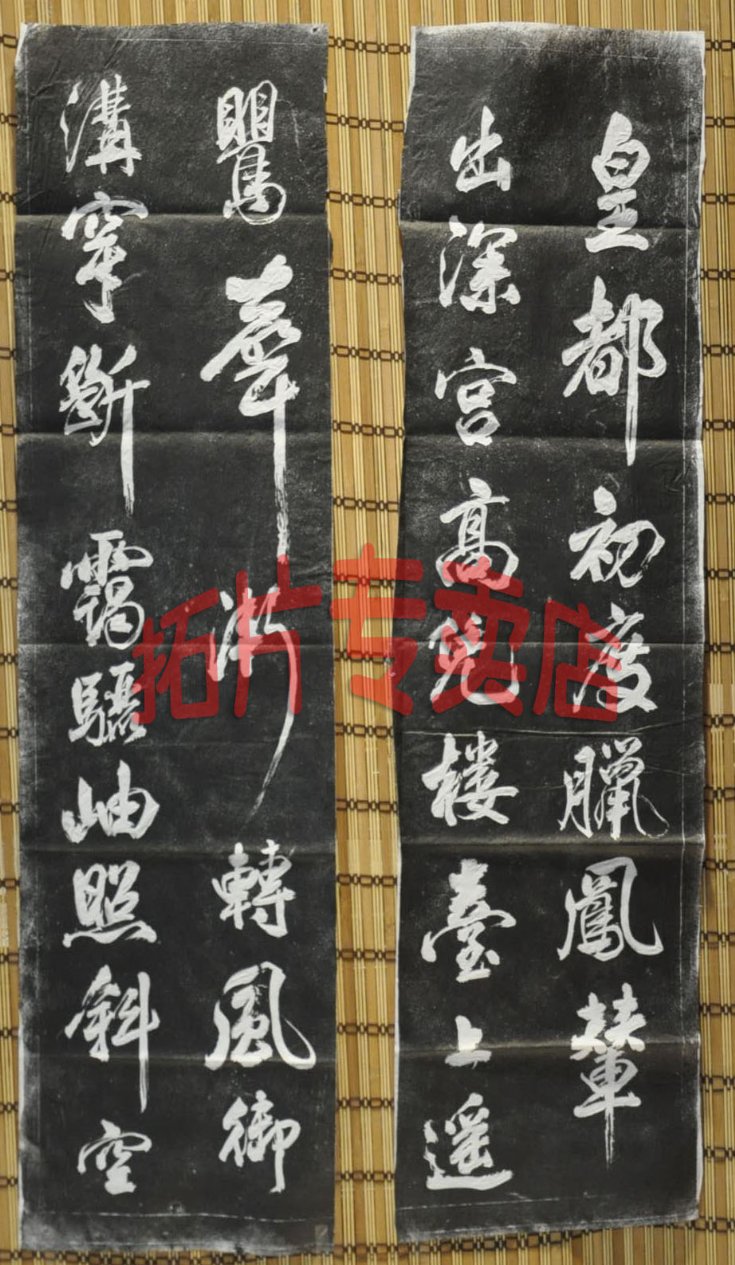 皇都初度臘鳳輦
出深宫高楼臺上遥
鸎華漸轉風御
溝穿斷靄驪岫照斜空
拓片专卖店